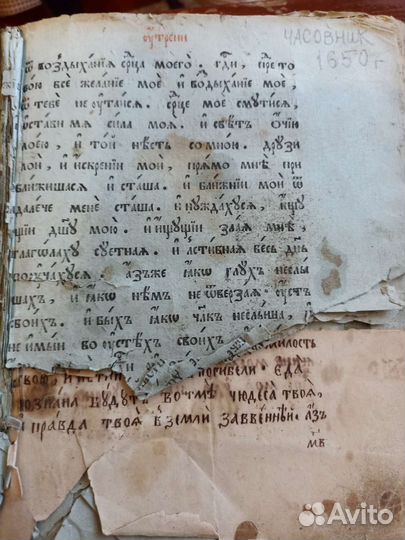 оу҆трени
ЧАСОВНИК
1650 г
ѿ воздыханїѧ срⷣца моегѡ. гдⷭ҇и, пре́ то
бою всѐ желанїе моѐ и҆ воздыханїе моѐ,
ѿ тебѐ не оу҆таисѧ. срⷣце моѐ смѧтисѧ,
ѡ҆стави мѧ сила моѧ. и҆ свѣтъ ѻ҆чїю
моею, и҆ той нѣсть со мною. дрꙋзи
мои, и҆ искреннїи мои, прѧмо мнѣ при
ближишасѧ и҆ сташа. и҆ ближнїи мои ѿ
далече менѐ сташа. и҆ нꙋждахꙋсѧ, и҆щꙋ
щїи дш҃ꙋ мою. и҆ и҆щꙋщїи ѕлаѧ мнѣ,
глаголахꙋ сꙋетнаѧ. и҆ льстивнаѧ весь дн҃ь
поꙋчахꙋсѧ. а҆зъ же ꙗ҆кѡ глꙋхъ не слы
шахъ, и҆ ꙗ҆кѡ нѣмъ не ѿверзаѧ оу҆стъ
своихъ. и҆ быхъ ꙗ҆кѡ чл҃къ не слыша,
не имыи во оу҆стѣхъ своихъ
милость
твою, погибели. е҆да
познана бꙋдꙋтъ во тмѣ чюдеса твоѧ,
и правда твоѧ в земли забвеннѣй. а҆зъ
м҃в
Avito